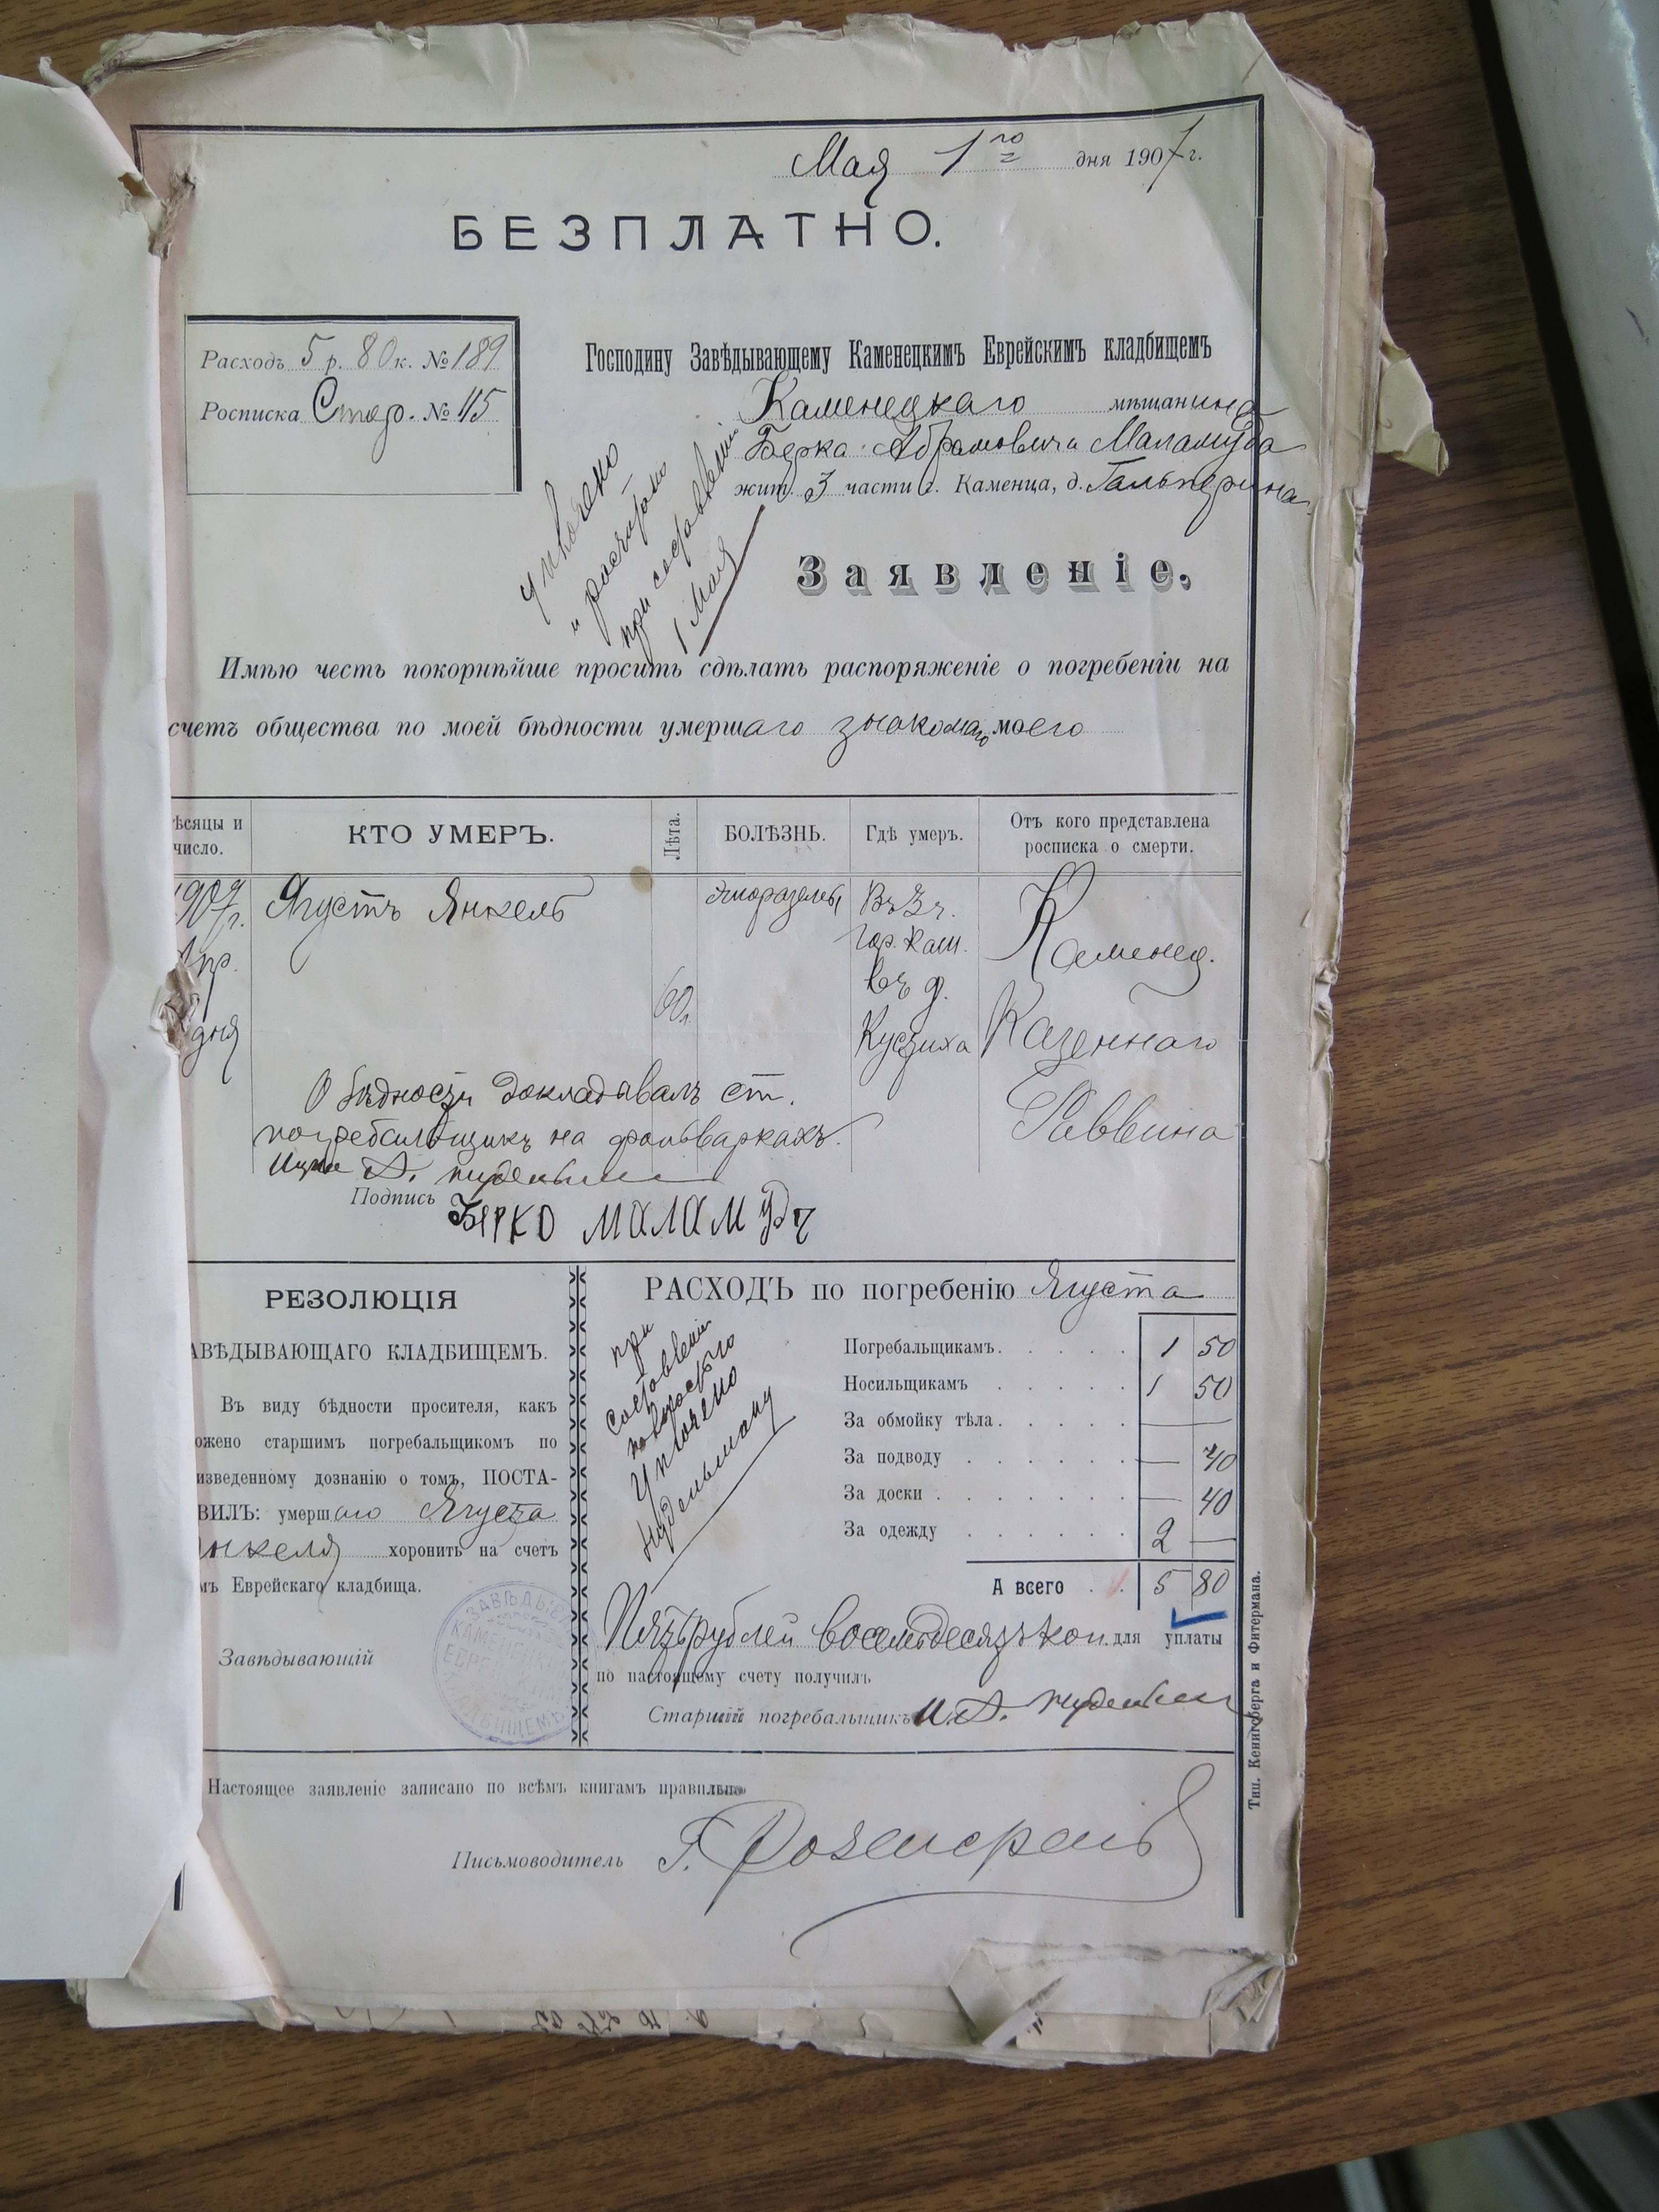 Мая 1го дня 1907 г.
БЕЗПЛАТНО.
Расходъ 5 р. 80 к. № 189
Росписка Стар. № 115
Господину Завѣдывающему Каменецкимъ Еврейскимъ кладбищемъ
Каменецкаго мѣщанина
Берка Абрамовича Маламуда
жит. 3 части г. Каменца, д. Гальперина
Уплочено
и
при составленіи
1 Мая
Заявленіе.
Имѣю честь покорнѣйше просить сдѣлать распоряженіе о погребеніи на
счетъ общества по моей бѣдности умершаго знакомаго моего
ѣсяцы и число.
КТО УМЕРЪ.
Лѣта.
БОЛѢЗНЬ.
Гдѣ умеръ.
Отъ кого представлена росписка о смерти.
1907 г.
Апр.
дня
Ягустъ Янкель
60 л.
Въ 3 ч.
гор. Кам.
въ д.
Каменец.
Казеннаго
Раввина
О бѣдности докладывалъ ст.
погребальщикъ на фольваркахъ
Подпись Берко Маламудъ
РЕЗОЛЮЦІЯ
АВѢДЫВАЮЩАГО КЛАДБИЩЕМЪ.
Въ виду бѣдности просителя, какъ
ожено старшимъ погребальщикомъ по
изведенному дознанію о томъ, ПОСТА-
ВИЛЪ: умершаго Ягуста
Янкеля хоронить на счетъ
мъ Еврейскаго кладбища.
Завѣдывающій
РАСХОДЪ по погребенію Ягуста
при
составленіи
Уплочено
Нудельману
Погребальщикамъ. 1 50
Носильщикамъ 1 50
За обмойку тѣла. —
За подводу — 40
За доски — 40
За одежду 2 —
А всего 5 80
Пять рублей восемьдесятъ коп. для уплаты
по настоящему счету получилъ
Старшій погребальщикъ
Настоящее заявленіе записано по всѣмъ книгамъ правильно
Письмоводитель Г.
Тип. Кенигсберга и Фитермана.